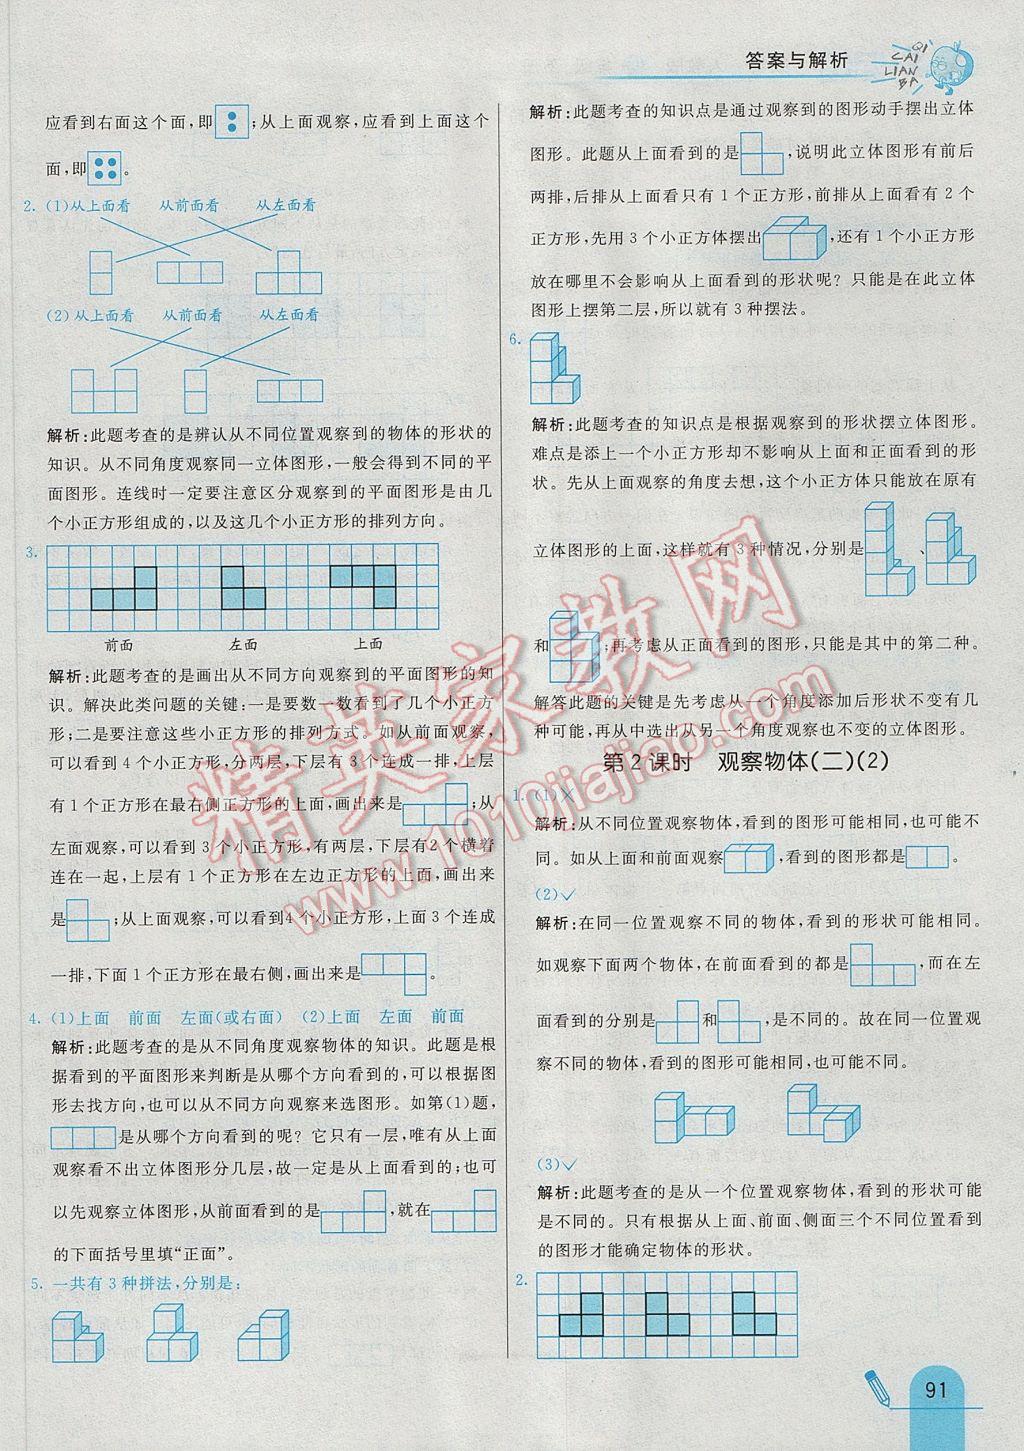 答案与解析
QI
CAI
LIAN
BA
应看到右面这个面,即;从上面观察,应看到上面这个
面,即。
2. (1)从上面看 从前面看 从左面看
(2)从上面看 从前面看 从左面看
解析:此题考查的是辨认从不同位置观察到的物体的形状的
知识。从不同角度观察同一立体图形,一般会得到不同的平
面图形。连线时一定要注意区分观察到的平面图形是由几
个小正方形组成的,以及这几个小正方形的排列方向。
3.
前面 左面 上面
解析:此题考查的是画出从不同方向观察到的平面图形的知
识。解决此类问题的关键:一是要数一数看到了几个小正方
形;二是要注意这些小正方形的排列方式。如从前面观察,
可以看到4个小正方形,分两层,下层有3个连成一排,上层
有1个正方形在最右侧正方形的上面,画出来是;从
左面观察,可以看到3个小正方形,有两层,下层有2个横着
连在一起,上层有1个正方形在左边正方形的上面,画出来
是;从上面观察,可以看到4个小正方形,上面3个连成
一排,下面1个正方形在最右侧,画出来是。
4. (1)上面 前面 左面(或右面) (2)上面 左面 前面
解析:此题考查的是从不同角度观察物体的知识。此题是根
据看到的平面图形来判断是从哪个方向看到的,可以根据图
形去找方向,也可以从不同方向观察来选图形。如第(1)题,
是从哪个方向看到的呢?它只有一层,唯有从上面
观察看不出立体图形分几层,故一定是从上面看到的;也可
以先观察立体图形,从前面看到的是,就在
的下面括号里填“正面”。
5. 一共有3种拼法,分别是:
解析:此题考查的知识点是通过观察到的图形动手摆出立体
图形。此题从上面看到的是,说明此立体图形有前后
两排,后排从上面看只有1个正方形,前排从上面看有2个
正方形,先用3个小正方体摆出,还有1个小正方体
放在哪里不会影响从上面看到的形状呢?只能是在此立体
图形上摆第二层,所以就有3种摆法。
6.
解析:此题考查的知识点是根据观察到的形状摆立体图形。
难点是添上一个小正方形却不影响从上面和正面看到的形
状。先从上面观察的角度去想,这个小正方体只能放在原有
立体图形的上面,这样就有3种情况,分别是、
和;再考虑从正面看到的图形,只能是其中的第二种。
解答此题的关键是先考虑从一个角度添加后形状不变有几
种可能,再从中选出从另一个角度观察也不变的立体图形。
第2课时 观察物体(二)(2)
1. (1)✕
解析:从不同位置观察物体,看到的图形可能相同,也可能不
同。如从上面和前面观察,看到的图形都是。
(2)✓
解析:在同一位置观察不同的物体,看到的形状可能相同。
如观察下面两个物体,在前面看到的都是,而在左
面看到的分别是和,是不同的。故在同一位置观察
不同的物体,看到的图形可能相同,也可能不同。
(3)✓
解析:此题考查的是从一个位置观察物体,看到的形状可能
是不同的。只有根据从上面、前面、侧面三个不同位置看到
的图形才能确定物体的形状。
2.
91
精英家教网
www.1010jiajiao.com